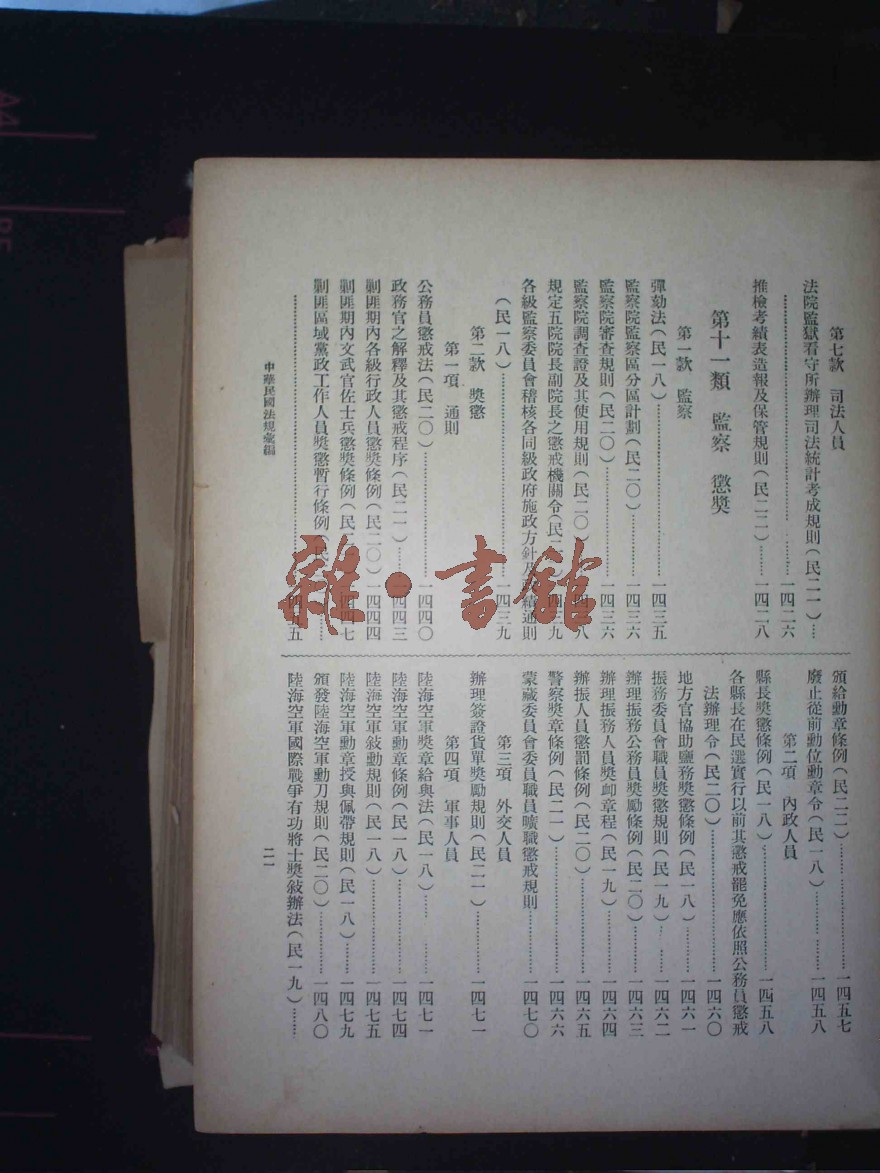 第七款 司法人員
法院監獄看守所辦理司法統計考成規則(民二一)…
………一四二六
推檢考績表造報及保管規則(民二二)……一四二八
第十一類 監察 懲獎
第一款 監察
彈劾法(民一八)………一四三五
監察院監察區分區計劃(民二〇)………一四三六
監察院審查規則(民二〇)………一四三六
監察院調查證及其使用規則(民二〇)
規定五院院長副院長之懲戒機關令
各級監察委員會稽核各同級政府施政方針及
(民一八)………一四三九
第二款 獎懲
第一項 通則
公務員懲戒法(民二〇)………一四四〇
政務官之解釋及其懲戒程序(民二一)……一四四三
剿匪期內各級行政人員懲獎條例(民二〇)……一四四四
剿匪期內文武官佐士兵懲獎條例
剿匪區域黨政工作人員獎懲暫行條例
………
頒給勳章條例(民二二)………一四五七
廢止從前勳位勳章令(民一八)………一四五八
第二項 內政人員
縣長獎懲條例(民一八)………一四五八
各縣長在民選實行以前其懲戒罷免應依照公務員懲戒
法辦理令(民二〇)………一四六〇
地方官協助鹽務獎懲條例(民一八)………一四六一
振務委員會職員獎懲規則(民一九)………一四六二
辦理振務公務員獎勵條例(民二〇)………一四六三
辦理振務人員獎卹章程(民一九)………一四六四
辦振人員懲罰條例(民二〇)………一四六五
警察獎章條例(民二一)………一四六六
蒙藏委員會委員職員曠職懲戒規則………一四七〇
第三項 外交人員
辦理簽證貨單獎勵規則(民二一)………一四七一
第四項 軍事人員
陸海空軍獎章給與法(民一八)………一四七一
陸海空軍勳章條例(民一八)………一四七四
陸海空軍敍勳規則(民一八)………一四七五
陸海空軍勳章授與佩帶規則(民一八)……一四七九
頒發陸海空軍勳刀規則(民二〇)………一四八〇
陸海空軍國際戰爭有功將士獎敍辦法(民一九)……
中華民國法規彙編
二一
雜·書館